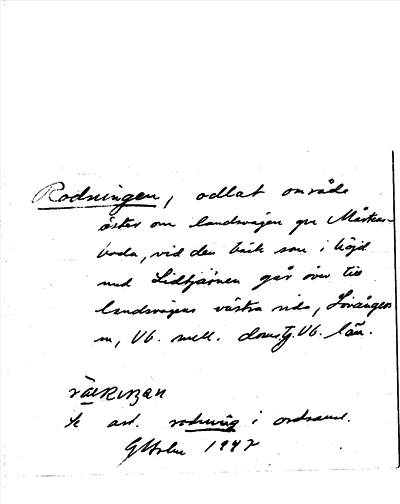 Rodningen, odlat område
öster om landsvägen gm Mårten-
boda, vid den bäck som i höjd
med Lidtjärnen går över till
landsvägens västra sida, Lövångers
sn, Vb. mell. doms. Vb. län.
Se art. rodning i ordsaml.
GHolm 1947